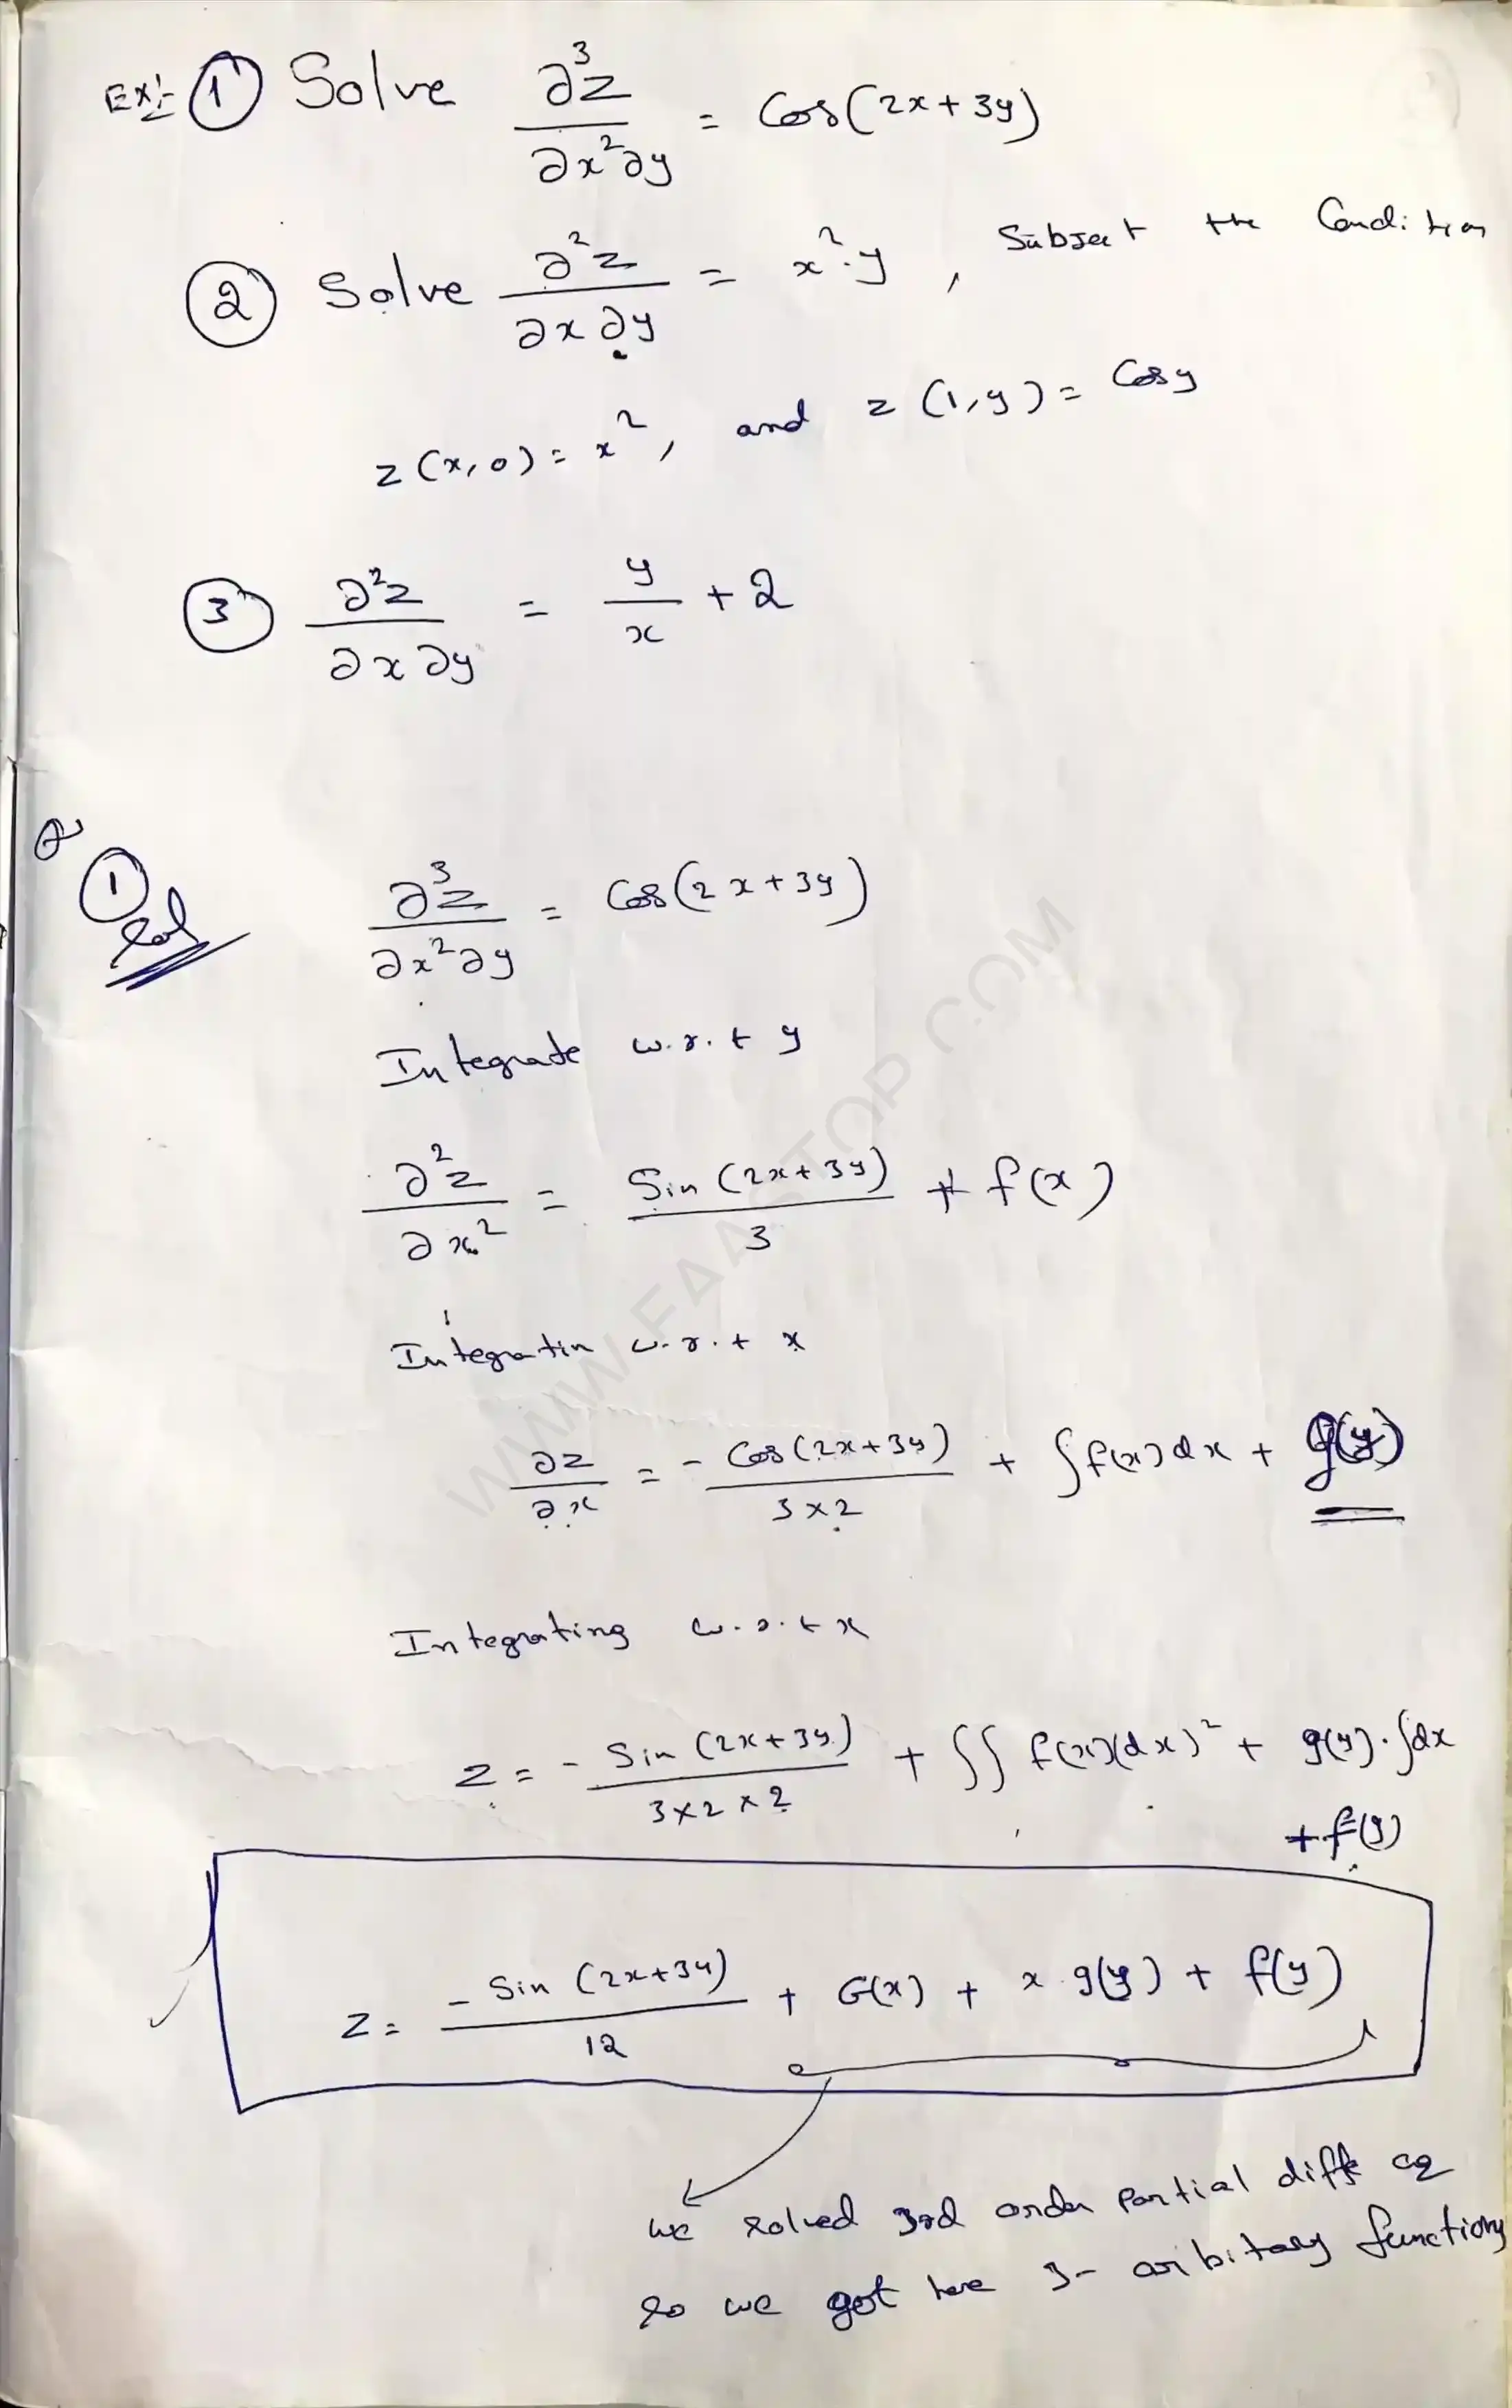 Ex:- ① Solve ∂³z/∂x²∂y = Cos(2x+3y)
② Solve ∂²z/∂x∂y = x².y, Subject the Condition
z(x,0) = x², and z(1,y) = Cosy
③ ∂²z/∂x∂y = y/x + 2
① Sol
∂³z/∂x²∂y = Cos(2x+3y)
Integrate w.r.t y
∂²z/∂x² = Sin(2x+3y)/3 + f(x)
Integratin w.r.t x
∂z/∂x = - Cos(2x+3y)/3×2 + ∫f(x)dx + g(y)
Integrating w.r.t x
z = - Sin(2x+3y)/3×2×2 + ∫∫ f(x)(dx)² + g(y).∫dx
+ f(y)
z = -Sin(2x+3y)/12 + G(x) + x.g(y) + f(y)
we solved 3rd order partial diff eq
so we got here 3- arbitary functions
WWW.FAASTOP.COM